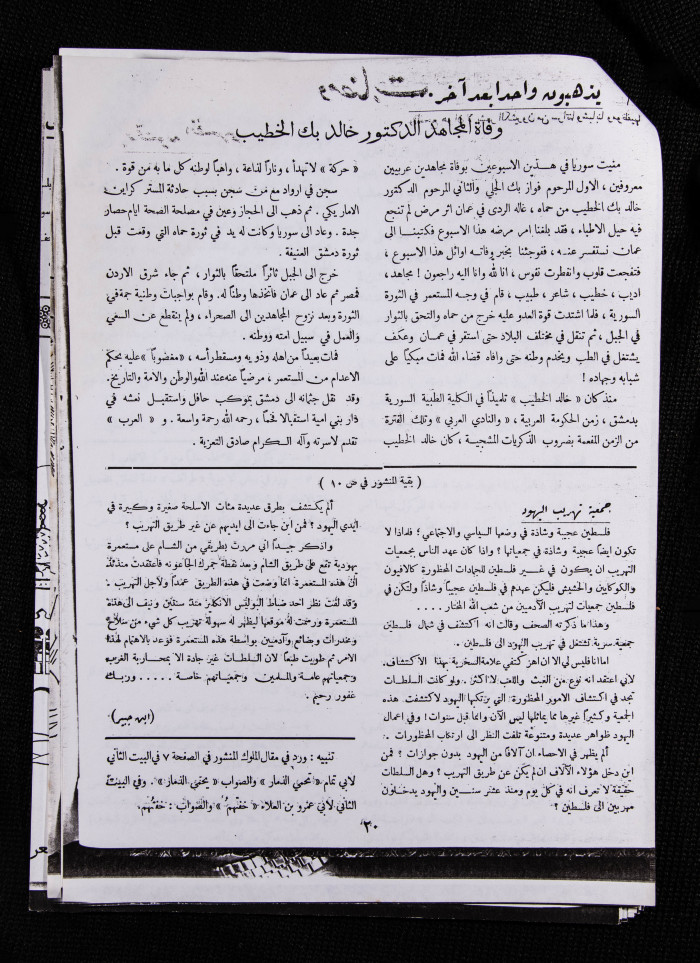 يذهبون واحدا بعد آخر ..
وفاة المجاهد الدكتور خالد بك الخطيب
منيت سوريا في هذين الاسبوعين بوفاة مجاهدين عربيين
معروفين ، الاول المرحوم فواز بك الجلي والثاني المرحوم الدكتور
خالد بك الخطيب من حماه ، غاله الردى في عمان اثر مرض لم تنجع
فيه حيل الاطباء ، فقد بلغنا امر مرضه هذا الاسبوع فكتبنا الى
عمان نستفسر عنه ، ففوجئنا بخبر وفاته اوائل هذا الاسبوع ،
فتفجعت قلوب وانفطرت نفوس ، انا لله وانا اليه راجعون ! مجاهد ،
اديب ، خطيب ، شاعر ، طبيب ، قام في وجه المستعمر في الثورة
السورية ، فلما اشتدت قوة العدو عليه خرج من حماه والتحق بالثوار
في الجبل ، ثم تنقل في مختلف البلاد حتى استقر في عمان وعكف
يشتغل في الطب ويخدم وطنه حتى وافاه قضاء الله فمات مبكيا على
شبابه وجهاده !
منذ كان « خالد الخطيب » تلميذا في الكلية الطبية السورية
بدمشق ، زمن الحكومة العربية ، « والنادي العربي » وتلك الفترة
من الزمن المفعمة بضروب الذكريات المشجية ، كان خالد الخطيب
« حركة » لا تهدأ ، ونارا لذاعة ، واهبا لوطنه كل ما به من قوة .
سجن في ارواد مع من سجن بسبب حادثة المستر كراين
الامريكي . ثم ذهب الى الحجاز وعين في مصلحة الصحة ايام حصار
جدة . وعاد الى سوريا وكانت له يد في ثورة حماه التي وقعت قبل
ثورة دمشق العنيفة .
خرج الى الجبل ثائرا ملتحقا بالثوار ، ثم جاء شرق الاردن
فمصر ثم عاد الى عمان فاتخذها وطنا له . وقام بواجبات وطنية جمة في
الثورة وبعد نزوح المجاهدين الى الصحراء ، ولم ينقطع عن السعي
والعمل في سبيل امته ووطنه .
فمات بعيدا من اهله وذويه ومسقط رأسه ، « مغضوبا » عليه بحكم
الاعدام من المستعمر ، مرضيا عنه عند الله والوطن والامة والتاريخ .
وقد نقل جثمانه الى دمشق بموكب حافل واستقبل نعشه في
دار بني امية استقبالا فخما ، رحمه الله رحمة واسعة . و « العرب »
تقدم لاسرته وآله الكرام صادق التعزية .
( بقية المنشور في ص ١٠ )
جمعية تهريب اليهود
فلسطين عجيبة وشاذة في وضعها السياسي والاجتماعي ؛ فلماذا لا
تكون ايضا عجيبة وشاذة في جمعياتها ؟ واذا كان عهد الناس بجمعيات
التهريب ان يكون في غير فلسطين للجمادات المحظورة كالافيون
والكوكايين والحشيش فليكن عهدهم في فلسطين عجيبا وشاذا ولتكن في
فلسطين جمعيات لتهريب الآدميين من شعب الله المختار ....
وهذا ما ذكرته الصحف وقالت انه اكتشف في شمال فلسطين
جمعية سرية تشتغل في تهريب اليهود الى فلسطين .
اما انا فليس لي الا ان اهز كتفي علامة السخرية بهذا الاكتشاف .
لأني اعتقد انه نوع من العبث واللعب لا اكثر . ولو كانت السلطات
تجد في اكتشاف الامور المحظورة التي يرتكبها اليهود لاكتشفت هذه
الجمعية وكثيرا غيرها مما يماثلها ليس الآن وانما قبل سنوات ! وفي اعمال
اليهود ظواهر عديدة ومتنوعة تلفت النظر الى ارتكاب المحظورات .
ألم يظهر في الاحصاء ان آلافا من اليهود بدون جوازات ؟ فمن
اين دخل هؤلاء الآلاف ان لم يكن عن طريق التهريب ؟ وهل السلطات
حقيقة لا تعرف انه في كل يوم ومنذ عشر سنين واليهود يدخلون
مهربين الى فلسطين ؟
ألم يكتشف بطرق عديدة مئات الاسلحة صغيرة وكبيرة في
ايدي اليهود ؟ فمن اين جاءت الى ايديهم عن غير طريق التهريب ؟
واذكر جيدا اني مررت بطريقي من الشام على مستعمرة
يهودية تقع على طريق الشام وبعد نقطة جمرك الجاعونه فاعتقدت منذئذ
ان هذه المستعمرة انما وضعت في هذه الطريق عمدا ولأجل التهريب .
وقد لفت نظر احد ضباط البوليس الانكليز منذ سنتين ونيف الى هذه
المستعمرة ورسمت له موقعها ليظهر له سهولة تهريب كل شيء من سلاح
ومخدرات وبضائع وآدميين بواسطة هذه المستعمرة فوعد بالاهتمام لهذا
الامر ثم طويت طبعا لان السلطات غير جادة الا بمحاربة العرب
وجمعياتهم عامة والمسلمين وجمعياتهم خاصة ..... وربك
غفور رحيم .
(ابن جبير)
تنبيه : ورد في مقال الملوك المنشور في الصفحة ٧ في البيت الثاني
لابي تمام « تحمي الذمار » والصواب « يحمي الذمار » . وفي البيت
الثاني لأبي عمرو بن العلاء « خفتهم » والصواب : خفتهم .
٢٠